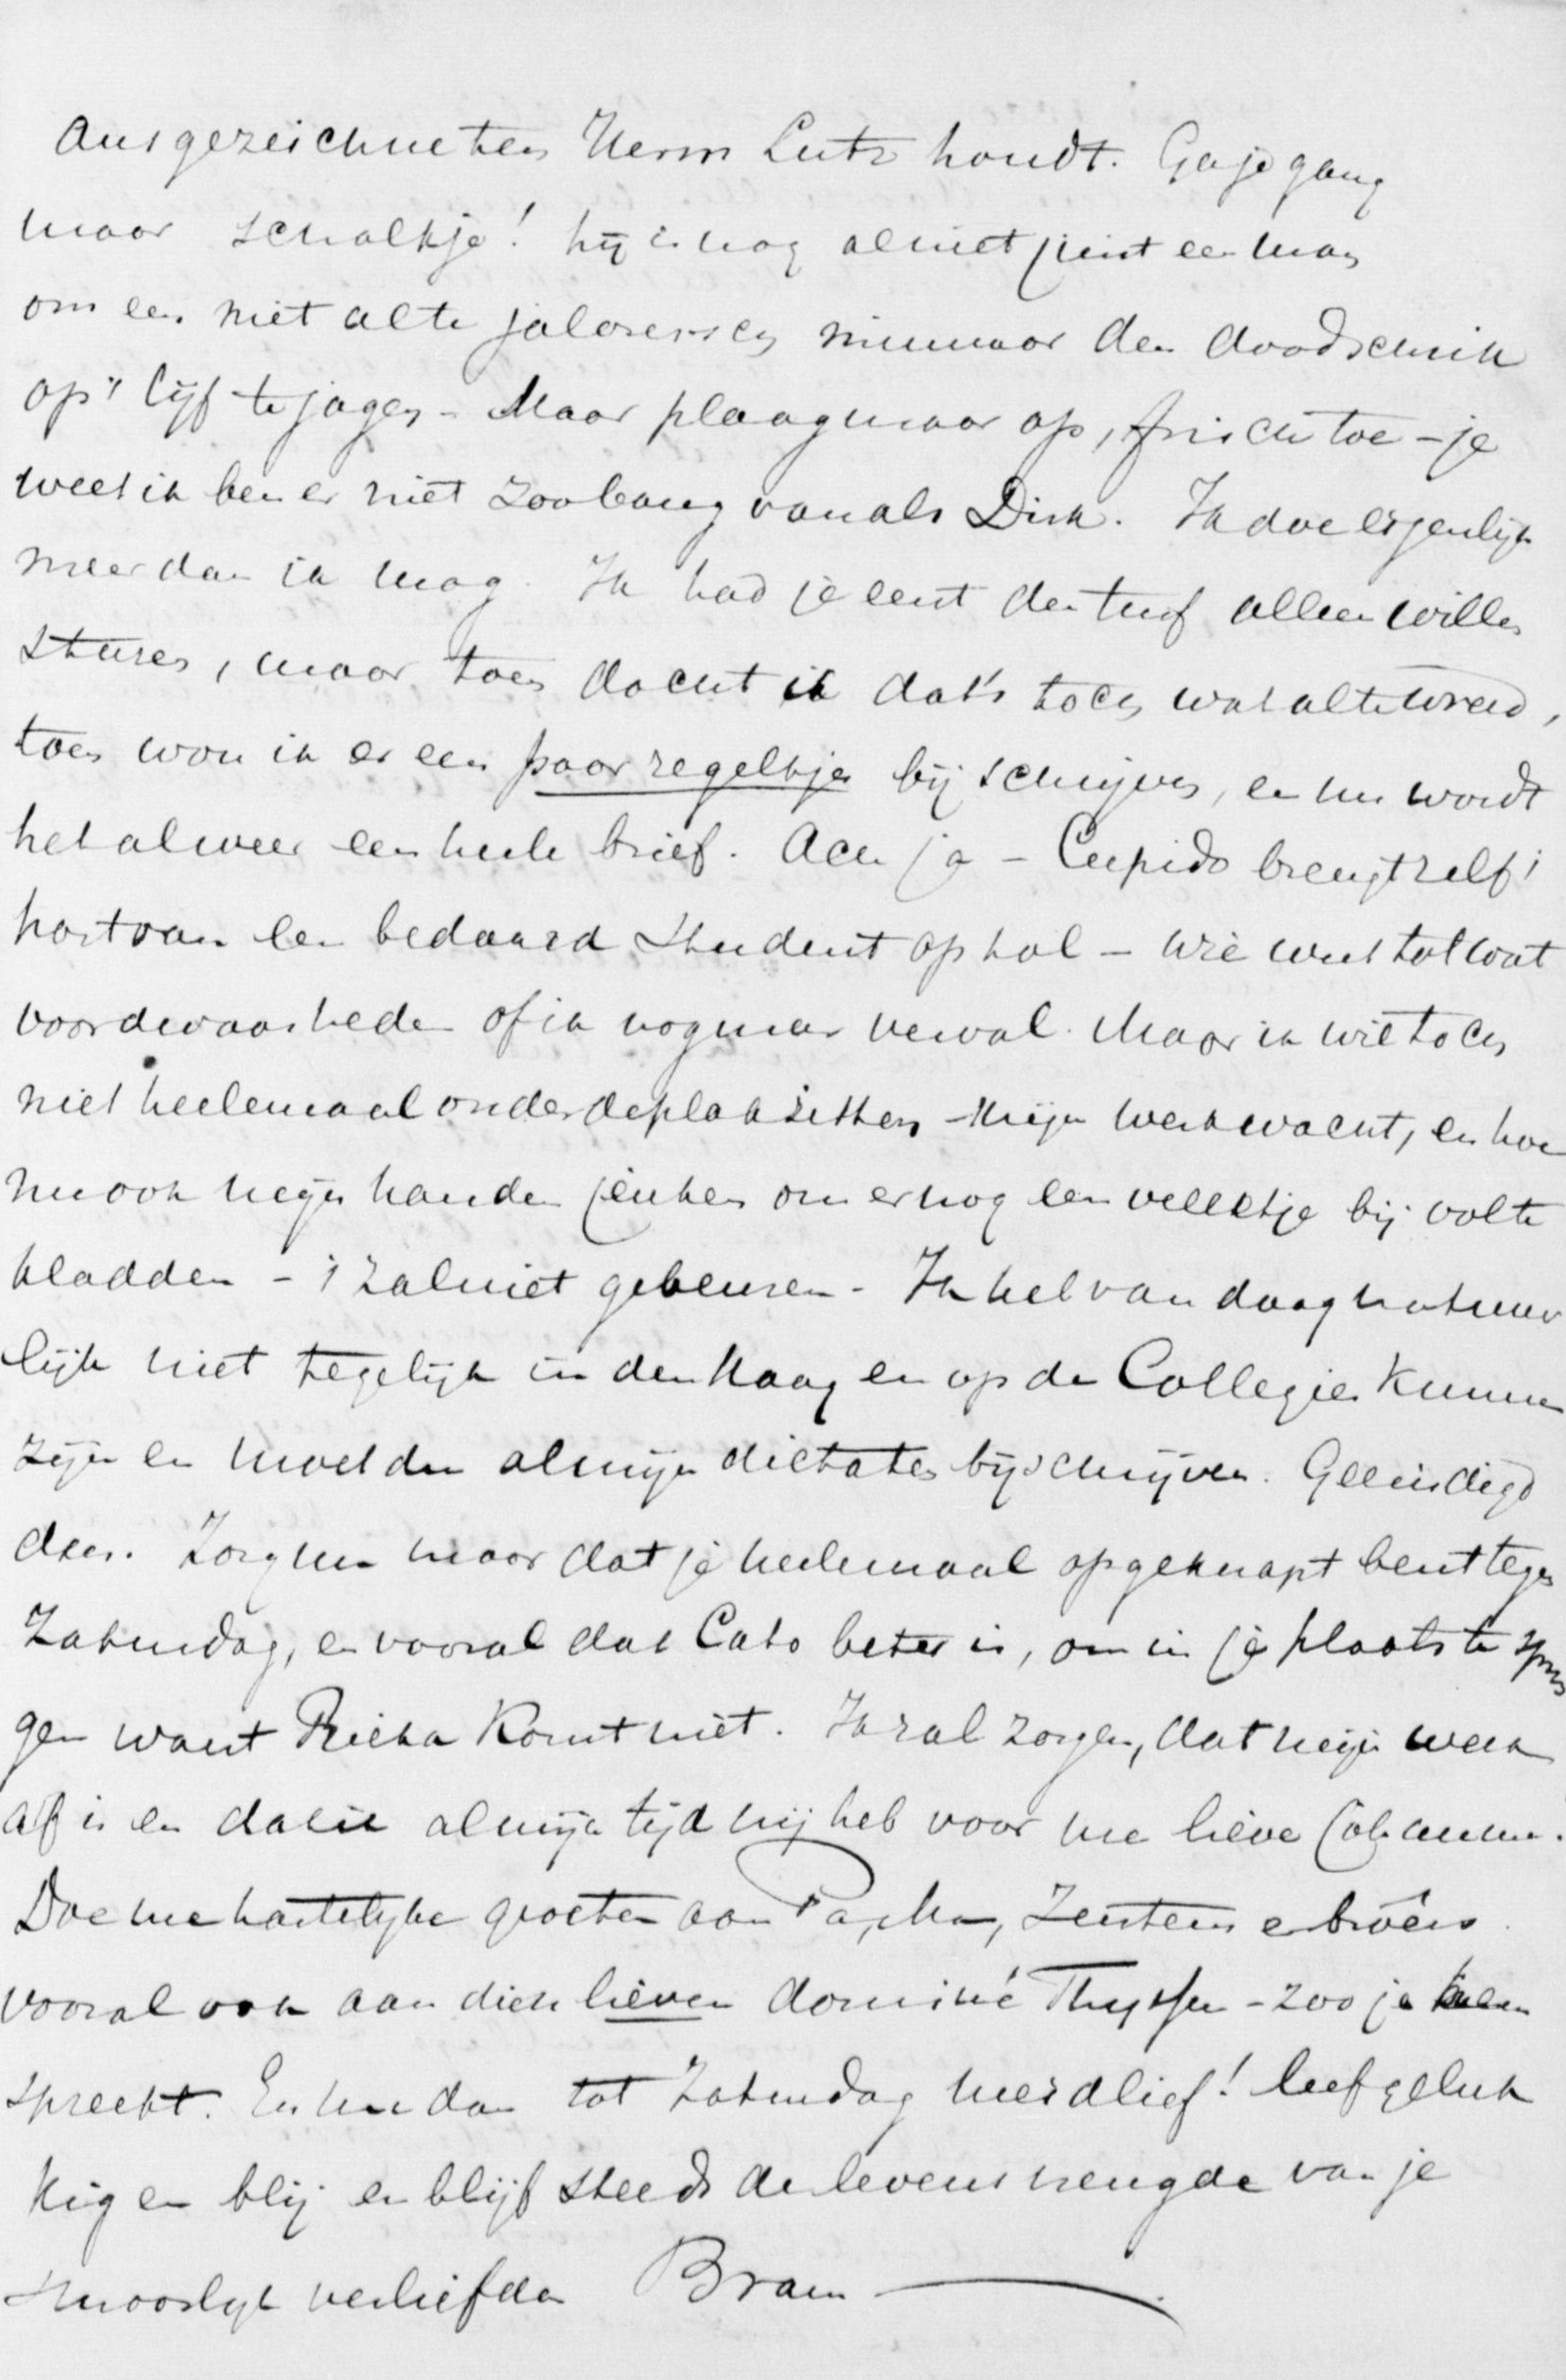 ausgezeichneten Herrn Lutz houdt. Ga je gang
maar schalkje! hij is nog al niet juist een man
om een niet al te jaloerschen minnaar den doodschrik
op 't lijf te jagen – Maar plaag maar op, frisch toe – je
weet ik ben er niet zoo bang van als Dirk. Ik doe eigenlijk
meer dan ik mag. Ik had je eerst den turf alleen willen
sturen, maar toen dacht ik dat is toch wat al te wreed,
toen wou ik er een paar regeltjes bij schrijven, en nu wordt
het alweer een heele brief. Ach ja – Cupido brengt zelf 't
hart van een bedaard student op hol – wie weet tot wat
voor dwaasheden of ik nog maar verval. Maar ik wil toch
niet heelemaal onder de plak zitten – Mijn werk wacht, en hoe
nu ook mijn handen jeuken om er nog een velletje bij vol te
kladden – 't zal niet gebeuren – Ik heb van daag natuur
lijk niet tegelijk in den Haag en op de Collegies kunnen
zijn en moet dus al mijn dictaten bijschrijven. Geeindigd
dus. Zorg nu maar dat je heelemaal opgeknapt bent tegen
Zaturdag, en vooral dat Cato beter is, om in je plaats te sprin
gen want Rieka komt niet. Ik zal zorgen, dat mijn werk
af is en dat ik al mijn tijd vrij heb voor me lieve Johanna.
Doe me hartelijke groeten aan Pa, Ma, Zusters en broêrs
vooral ook aan dien lieven dominé Thijssen – zoo je hem
spreekt. En nu dan tot Zaturdag meidlief! leef geluk
kig en blij en blijf steeds de levensvreugde van je
smoorlijk verliefden Bram